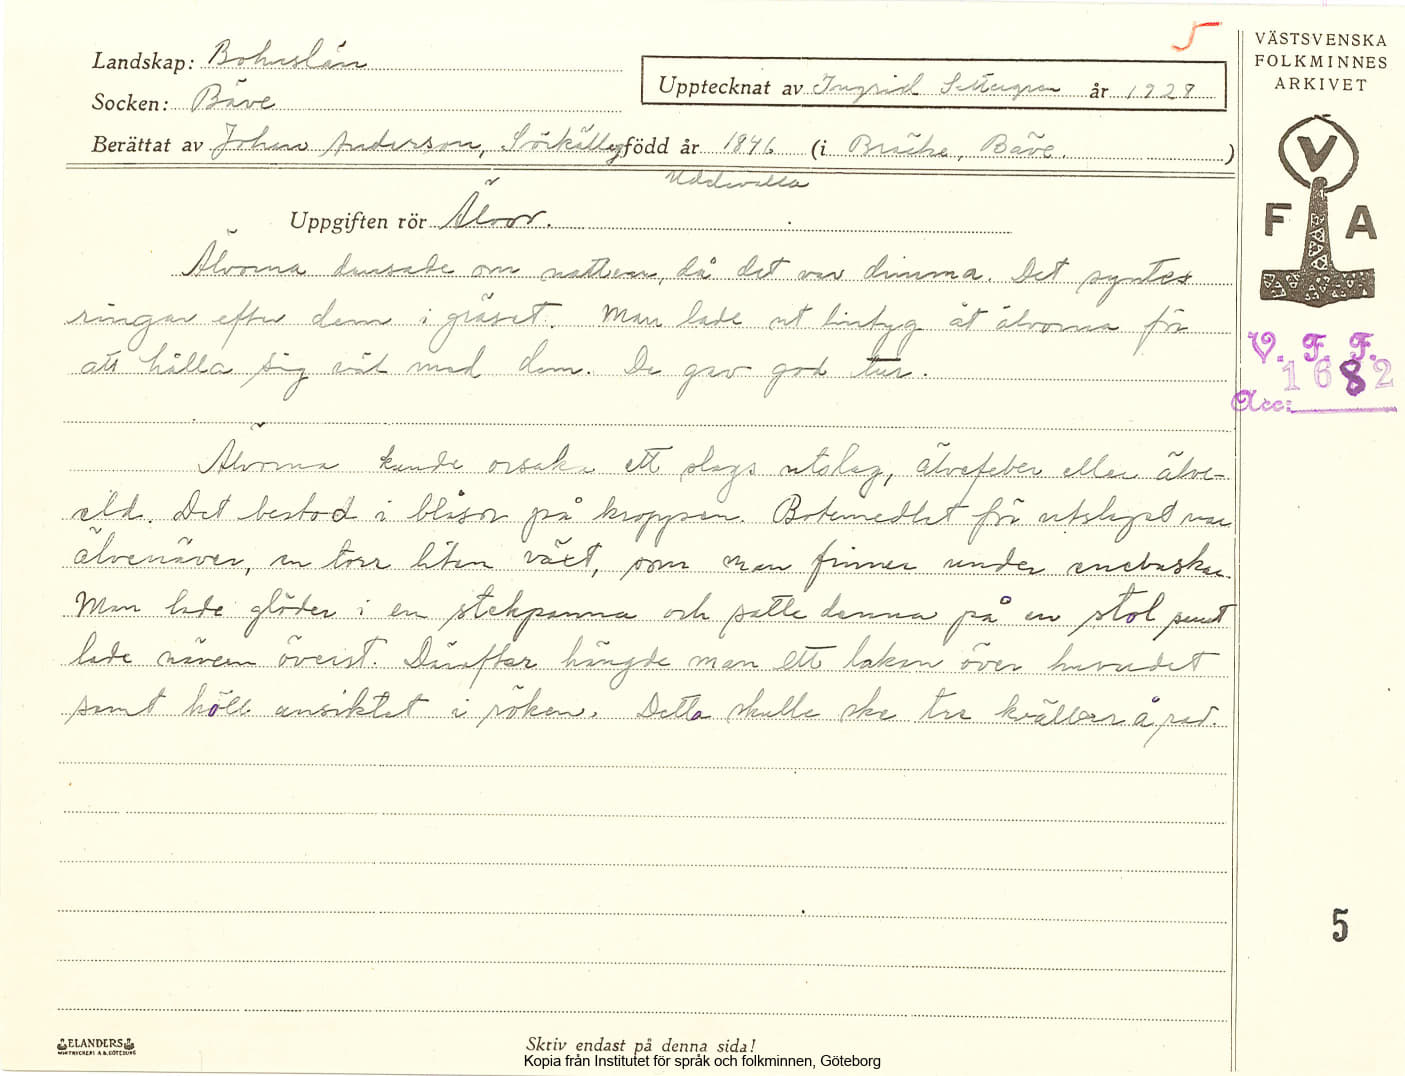 5
Landskap: Bohuslän
Socken: Bäve
Upptecknat av Ingrid år 1928
Berättat av Johan Anderson, född år 1846 (i Bräcke, Bäve. )
Uddevalla
Uppgiften rör Älvor.
Älvorna dansade om natten, då det var dimma. Det syntes
ringar efter dem i gräset. Man lade ut lintyg åt älvorna för
att hålla sig väl med dem. De gav god tur.
Älvorna kunde orsaka ett slags utslag, älvefeber eller älve-
eld. Det bestod i blåsor på kroppen. Botemedlet för utslaget var
älvenäver, en torr liten växt, som man finner under enebuskar.
Man lade glöder i en stekpanna och satte denna på en stol samt
lade nävern överst. Därefter hängde man ett lakan över huvudet
samt höll ansiktet i röken. Detta skulle ske tre kvällar å rad.
VÄSTSVENSKA
FOLKMINNES
ARKIVET
V
F A
V. F. F.
1682
Acc:
5
ELANDERS
Skriv endast på denna sida!
Kopia från Institutet för språk och folkminnen, Göteborg